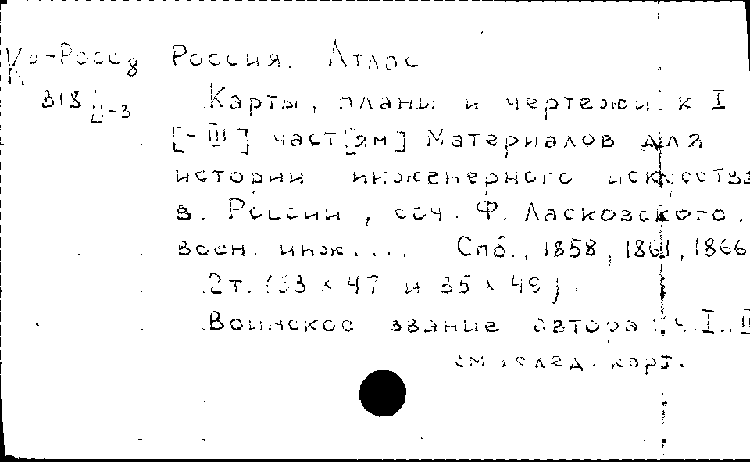 Ко-Росс 8 Россия. Атлас
318 II-3 Карты, планы и чертежи к I
[-III] част[ям] Материалов для
истории инженерного искусства
в России, соч. Ф. Ласковского.
воен. инж.... Спб., 1858, 1861, 1866
2т. (33 х 47 и 35 х 49).
Воинское звание автора: ч. I. II
см. след. карт.